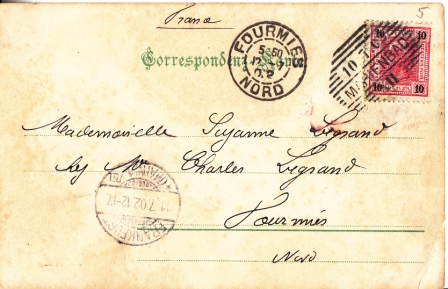 France
5
Correspondenz-Karte
FOURMIES
5-50
02
NORD
10 10
MARIENBAD
10 10
Mademoiselle Suzanne Legrand
chez Mr Charles Legrand
Fourmies
Nord
11.7.02.12-1N.
FRANKFURT